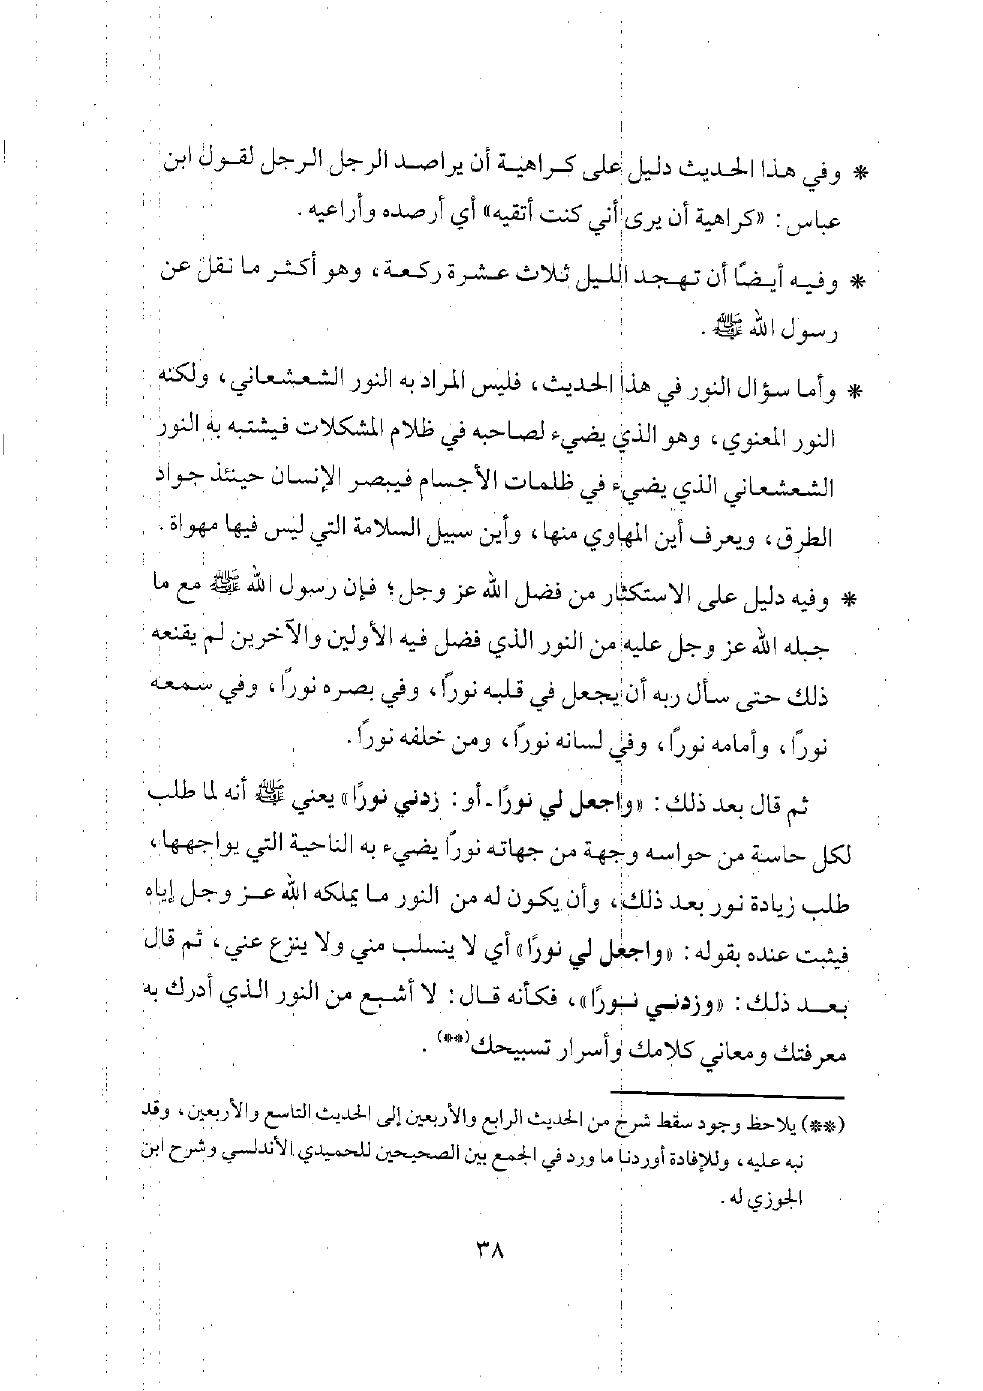 * وفي هذا الحديث دليل على كراهية أن يراصد الرجل الرجل لقول ابن
عباس: «كراهية أن يرى أني كنت أتقيه» أي أرصده وأراعيه.
* وفيه أيضًا أن تهجد الليل ثلاث عشرة ركعة، وهو أكثر ما نقل عن
رسول الله ﷺ.
* وأما سؤال النور في هذا الحديث، فليس المراد به النور الشعشعاني، ولكنه
النور المعنوي، وهو الذي يضيء لصاحبه في ظلام المشكلات فيشتبه به النور
الشعشعاني الذي يضيء في ظلمات الأجسام فيبصر الإنسان حينئذ جواد
الطرق، ويعرف أين المهاوي منها، وأين سبيل السلامة التي ليس فيها مهواة.
* وفيه دليل على الاستكثار من فضل الله عز وجل؛ فإن رسول الله ﷺ مع ما
جبله الله عز وجل عليه من النور الذي فضل فيه الأولين والآخرين لم يقنعه
ذلك حتى سأل ربه أن يجعل في قلبه نورًا، وفي بصره نورًا، وفي سمعه
نورًا، وأمامه نورًا، وفي لسانه نورًا، ومن خلفه نورًا.
ثم قال بعد ذلك: «واجعل لي نورًا - أو: زدني نورًا» يعني ﷺ أنه لما طلب
لكل حاسة من حواسه وجهة من جهاته نورًا يضيء به الناحية التي يواجهها،
طلب زيادة نور بعد ذلك، وأن يكون له من النور ما يملكه الله عز وجل إياه
فيثبت عنده بقوله: «واجعل لي نورًا» أي لا ينسلب مني ولا ينزع عني، ثم قال
بعد ذلك: «وزدني نورًا»، فكأنه قال: لا أشبع من النور الذي أدرك به
معرفتك ومعاني كلامك وأسرار تسبيحك(**).
(**) يلاحظ وجود سقط شرح من الحديث الرابع والأربعين إلى الحديث التاسع والأربعين، وقد
نبه عليه، وللإفادة أوردنا ما ورد في الجمع بين الصحيحين للحميدي الأندلسي وشرح ابن
الجوزي له.
٣٨